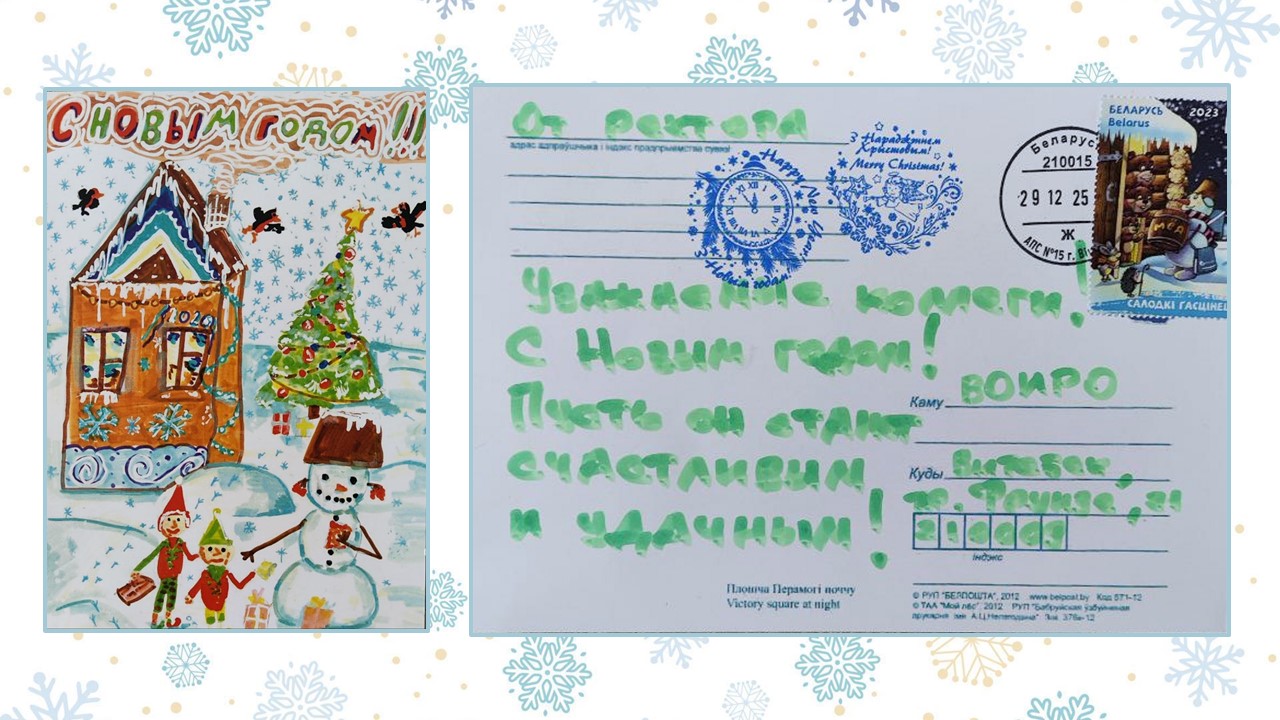 С НОВЫМ ГОДОМ!!!
2026
От ректора
адрас адпраўшчыка і індэкс прадпрыемства сувязі
Happy New Year!
З Новым годам!
З Нараджэннем
Хрыстовым!
Merry Christmas!
Беларусь
210015
29 12 25
Ж
АПС №15 г. Ві
БЕЛАРУСЬ
Belarus
2023
МЁД
САЛОДКІ ГАСЦІНЕЦ
Уважаемые коллеги!
С Новым годом!
Пусть он станет
счастливым
и удачным!
Каму ВОИРО
Куды Витебск,
пр. Фрунзе, 21
індэкс
Плошча Перамогі ноччу
Victory square at night
© РУП "БЕЛПОШТА", 2012 www.belpost.by Код 571-12
© ТАА "Мой лёс", 2012 РУП "Бабруйская ўзбуйненая
друкарня імя А.Ц.Непагодзіна" Зак. 376в-12